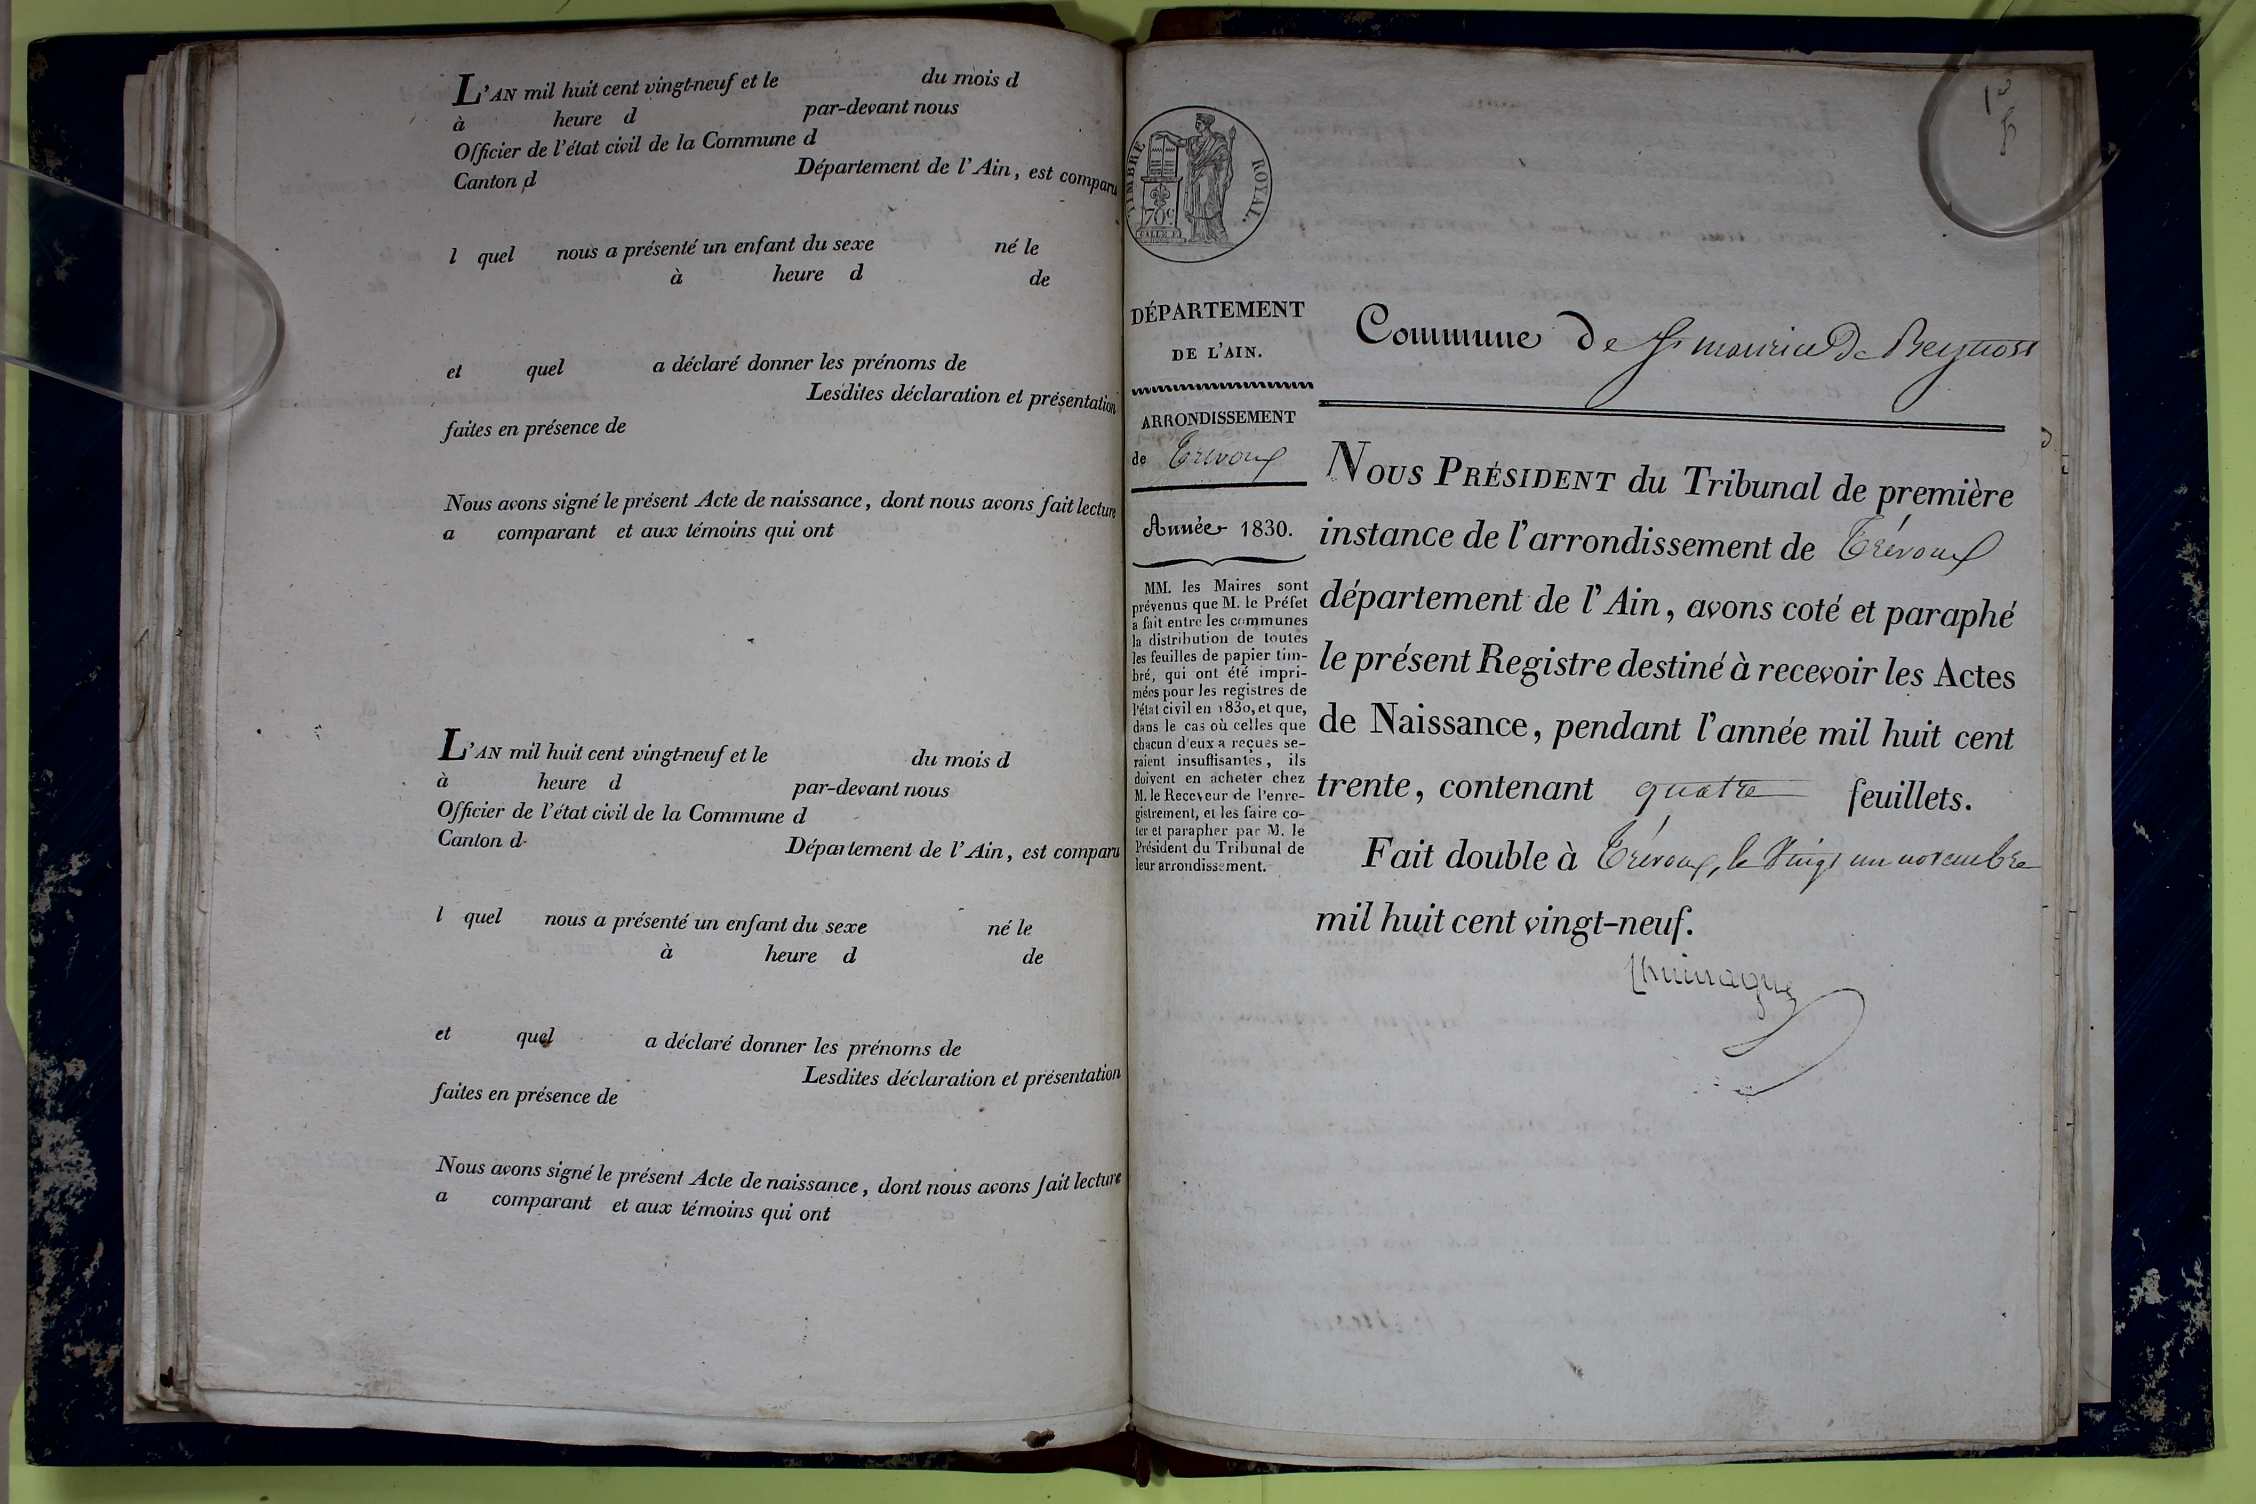 L'AN mil huit cent vingt-neuf et le du mois d
à heure d par-devant nous
Officier de l'état civil de la Commune d
Canton d Département de l'Ain, est comparu
l quel nous a présenté un enfant du sexe né le
à heure d de
et quel a déclaré donner les prénoms de
Lesdites déclaration et présentation
faites en présence de
Nous avons signé le présent Acte de naissance, dont nous avons fait lecture
a comparant et aux témoins qui ont
L'AN mil huit cent vingt-neuf et le du mois d
à heure d par-devant nous
Officier de l'état civil de la Commune d
Canton d Département de l'Ain, est comparu
l quel nous a présenté un enfant du sexe né le
à heure d de
et quel a déclaré donner les prénoms de
Lesdites déclaration et présentation
faites en présence de
Nous avons signé le présent Acte de naissance, dont nous avons fait lecture
a comparant et aux témoins qui ont
TIMBRE ROYAL.
70c
DÉPARTEMENT
DE L'AIN.
ARRONDISSEMENT
de Trévoux
Année 1830.
MM. les Maires sont
prévenus que M. le Préfet
a fait entre les communes
la distribution de toutes
les feuilles de papier tim-
bré, qui ont été impri-
mées pour les registres de
l'état civil en 1830, et que,
dans le cas où celles que
chacun d'eux a reçues se-
raient insuffisantes, ils
doivent en acheter chez
M. le Receveur de l'enre-
gistrement, et les faire co-
ter et parapher par M. le
Président du Tribunal de
leur arrondissement.
Commune De St maurice De Beynost
NOUS PRÉSIDENT du Tribunal de première
instance de l'arrondissement de Trévoux
département de l'Ain, avons coté et paraphé
le présent Registre destiné à recevoir les Actes
de Naissance, pendant l'année mil huit cent
trente, contenant quatre feuillets.
Fait double à Trévoux, le Vingt un novembre
mil huit cent vingt-neuf.